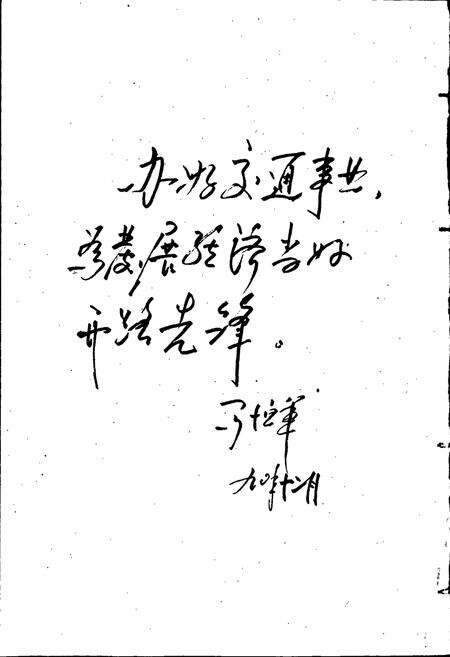 办好交通事业，
为發展经济当好
开路先锋。
马恒军
九〇年十二月